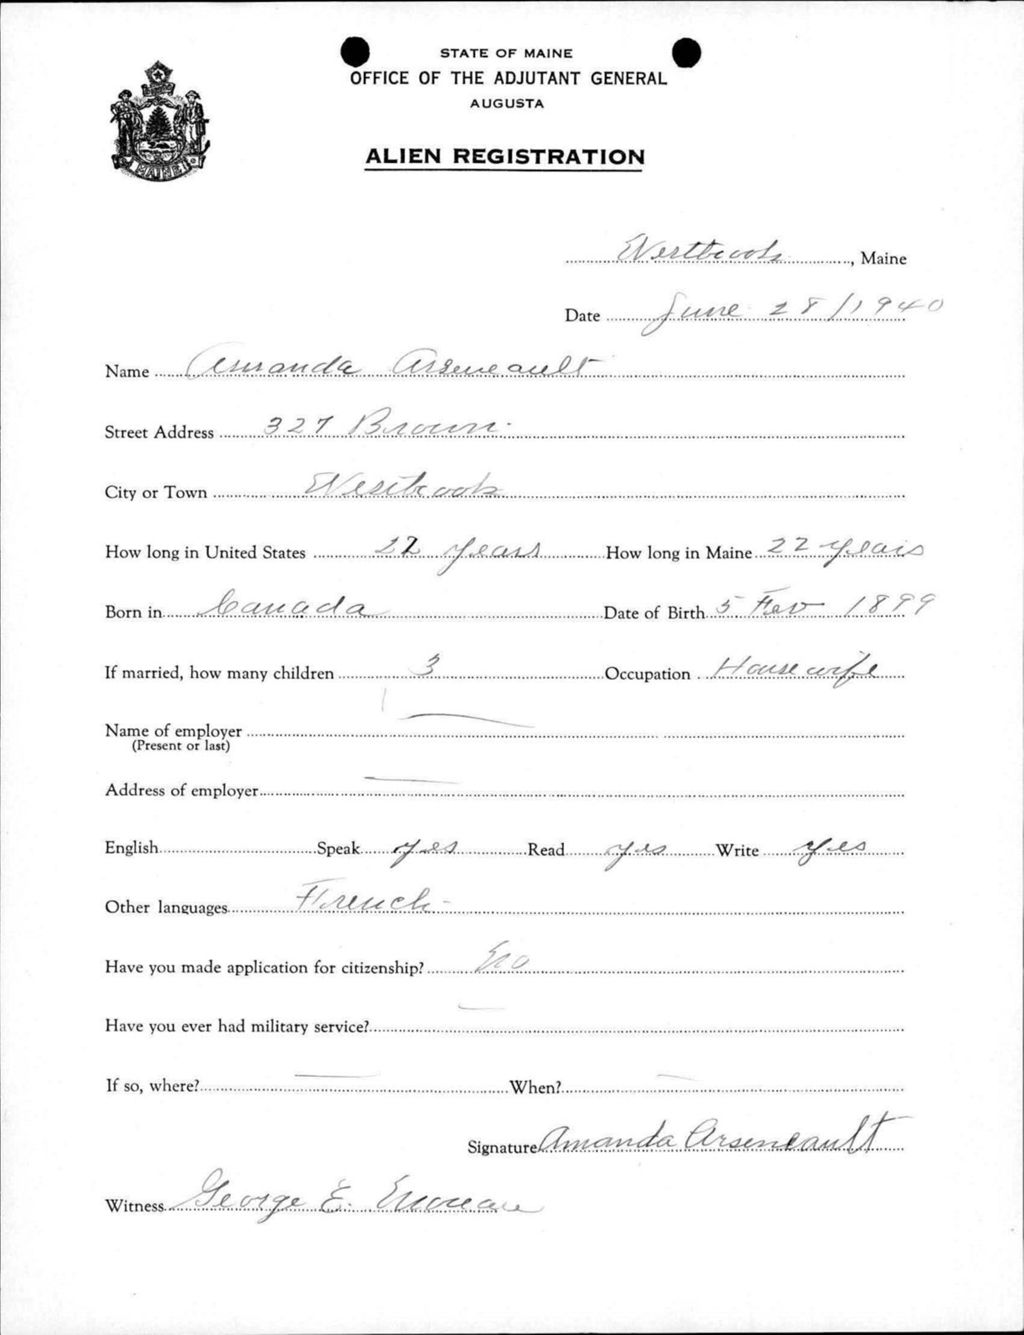 STATE OF MAINE
OFFICE OF THE ADJUTANT GENERAL
AUGUSTA
MAINE
ALIEN REGISTRATION
Westbrook, Maine
Date June 28/1940
Name Amanda Arseneault
Street Address 327 Brown
City or Town Westbrook
How long in United States 22 years How long in Maine 22 years
Born in Canada Date of Birth 5 Fev 1899
If married, how many children 3 Occupation Housewife
Name of employer
(Present or last)
Address of employer
English Speak yes Read yes Write yes
Other languages French
Have you made application for citizenship? No
Have you ever had military service?
If so, where? When?
Signature Amanda Arseneault
Witness George E.